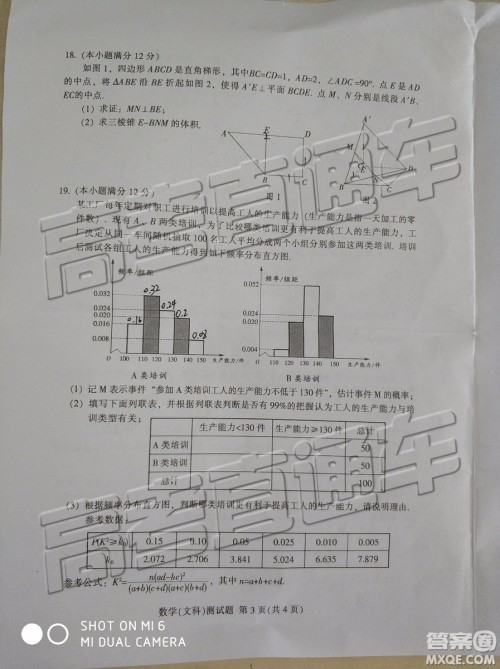 18. (本小题满分 12 分)
如图 1，四边形 ABCD 是直角梯形，其中 BC=CD=1，AD=2，∠ADC=90°. 点 E 是 AD
的中点，将 ΔABE 沿 BE 折起如图 2，使得 A'E⊥平面 BCDE. 点 M、N 分别是线段 A'B、
EC 的中点.
(1) 求证：MN⊥BE；
(2) 求三棱锥 E-BNM 的体积.
A E D
B C
图 1
A'
M
E D
B C
图 2
19. (本小题满分 12 分)
某工厂每年定期对职工进行培训以提高工人的生产能力（生产能力是指一天加工的零
件数）. 现有 A、B 两类培训，为了比较哪类培训更有利于提高工人的生产能力，工
厂决定从同一车间随机抽取 100 名工人平均分成两个小组分别参加这两类培训. 培训
后测试各组工人的生产能力得到如下频率分布直方图.
频率/组距
0.032
0.024
0.020
0.016
0.16 0.32 0.24 0.2 0.08
O 100 110 120 130 140 150 生产能力/件
A 类培训
频率/组距
0.024
0.020
0.004
O 110 120 130 140 150 生产能力/件
B 类培训
(1) 记 M 表示事件“参加 A 类培训工人的生产能力不低于 130 件”，估计事件 M 的概率；
(2) 填写下面列联表，并根据列联表判断是否有 99%的把握认为工人的生产能力与培
训类型有关；
生产能力<130 件 生产能力≥130 件 总计
A 类培训 50
B 类培训 50
总计 100
(3) 根据频率分布直方图，判断哪类培训更有利于提高工人的生产能力，请说明理由.
参考数据：
P(K²≥k₀) 0.15 0.10 0.05 0.025 0.010 0.005
k₀ 2.072 2.706 3.841 5.024 6.635 7.879
参考公式：K²=n(ad-bc)²/(a+b)(c+d)(a+c)(b+d)，其中 n=a+b+c+d.
数学(文科)测试题 第 3 页(共 4 页)
高考直通车
高考直通车
高考直通车
SHOT ON MI 6
MI DUAL CAMERA
答案圈
MXQE.COM